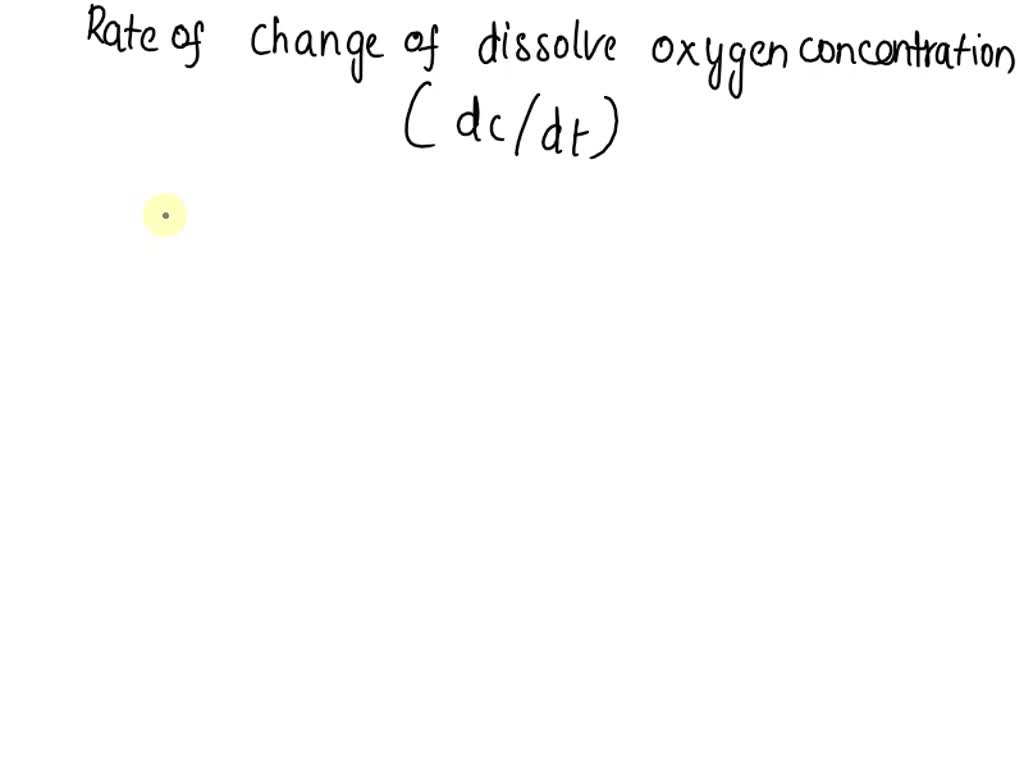 Rate of change of dissolve oxygen concentration
(dc/dt)